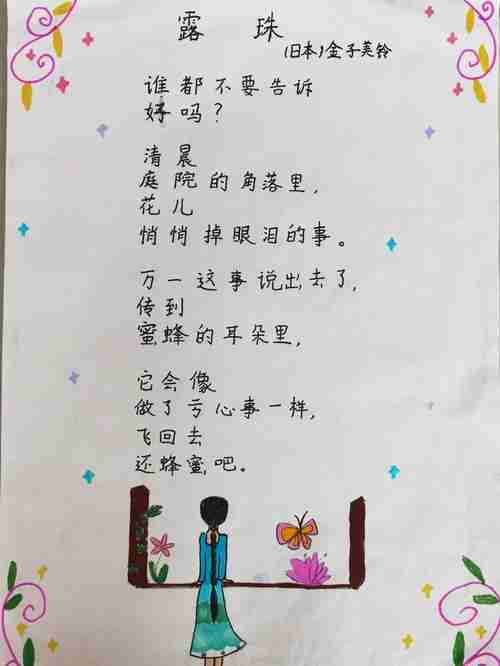 露珠
(日本)金子美铃
谁都不要告诉
好吗?
清晨
庭院的角落里,
花儿
悄悄掉眼泪的事。
万一这事说出去了,
传到
蜜蜂的耳朵里,
它会像
做了亏心事一样,
飞回去
还蜂蜜吧。